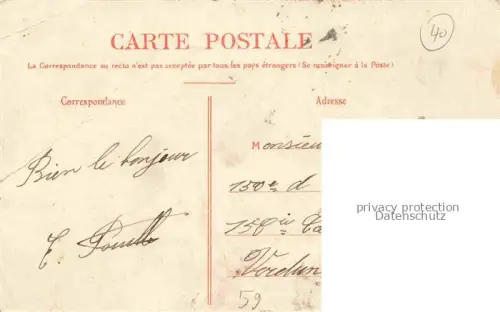 CARTE POSTALE
40
La Correspondance au recto n'est pas acceptée par tous les pays étrangers (Se renseigner à la Poste)
Correspondance
Adresse
Bien le bonjour
E.
Monsieu
150e d
Verdun
59
privacy protection
Datenschutz